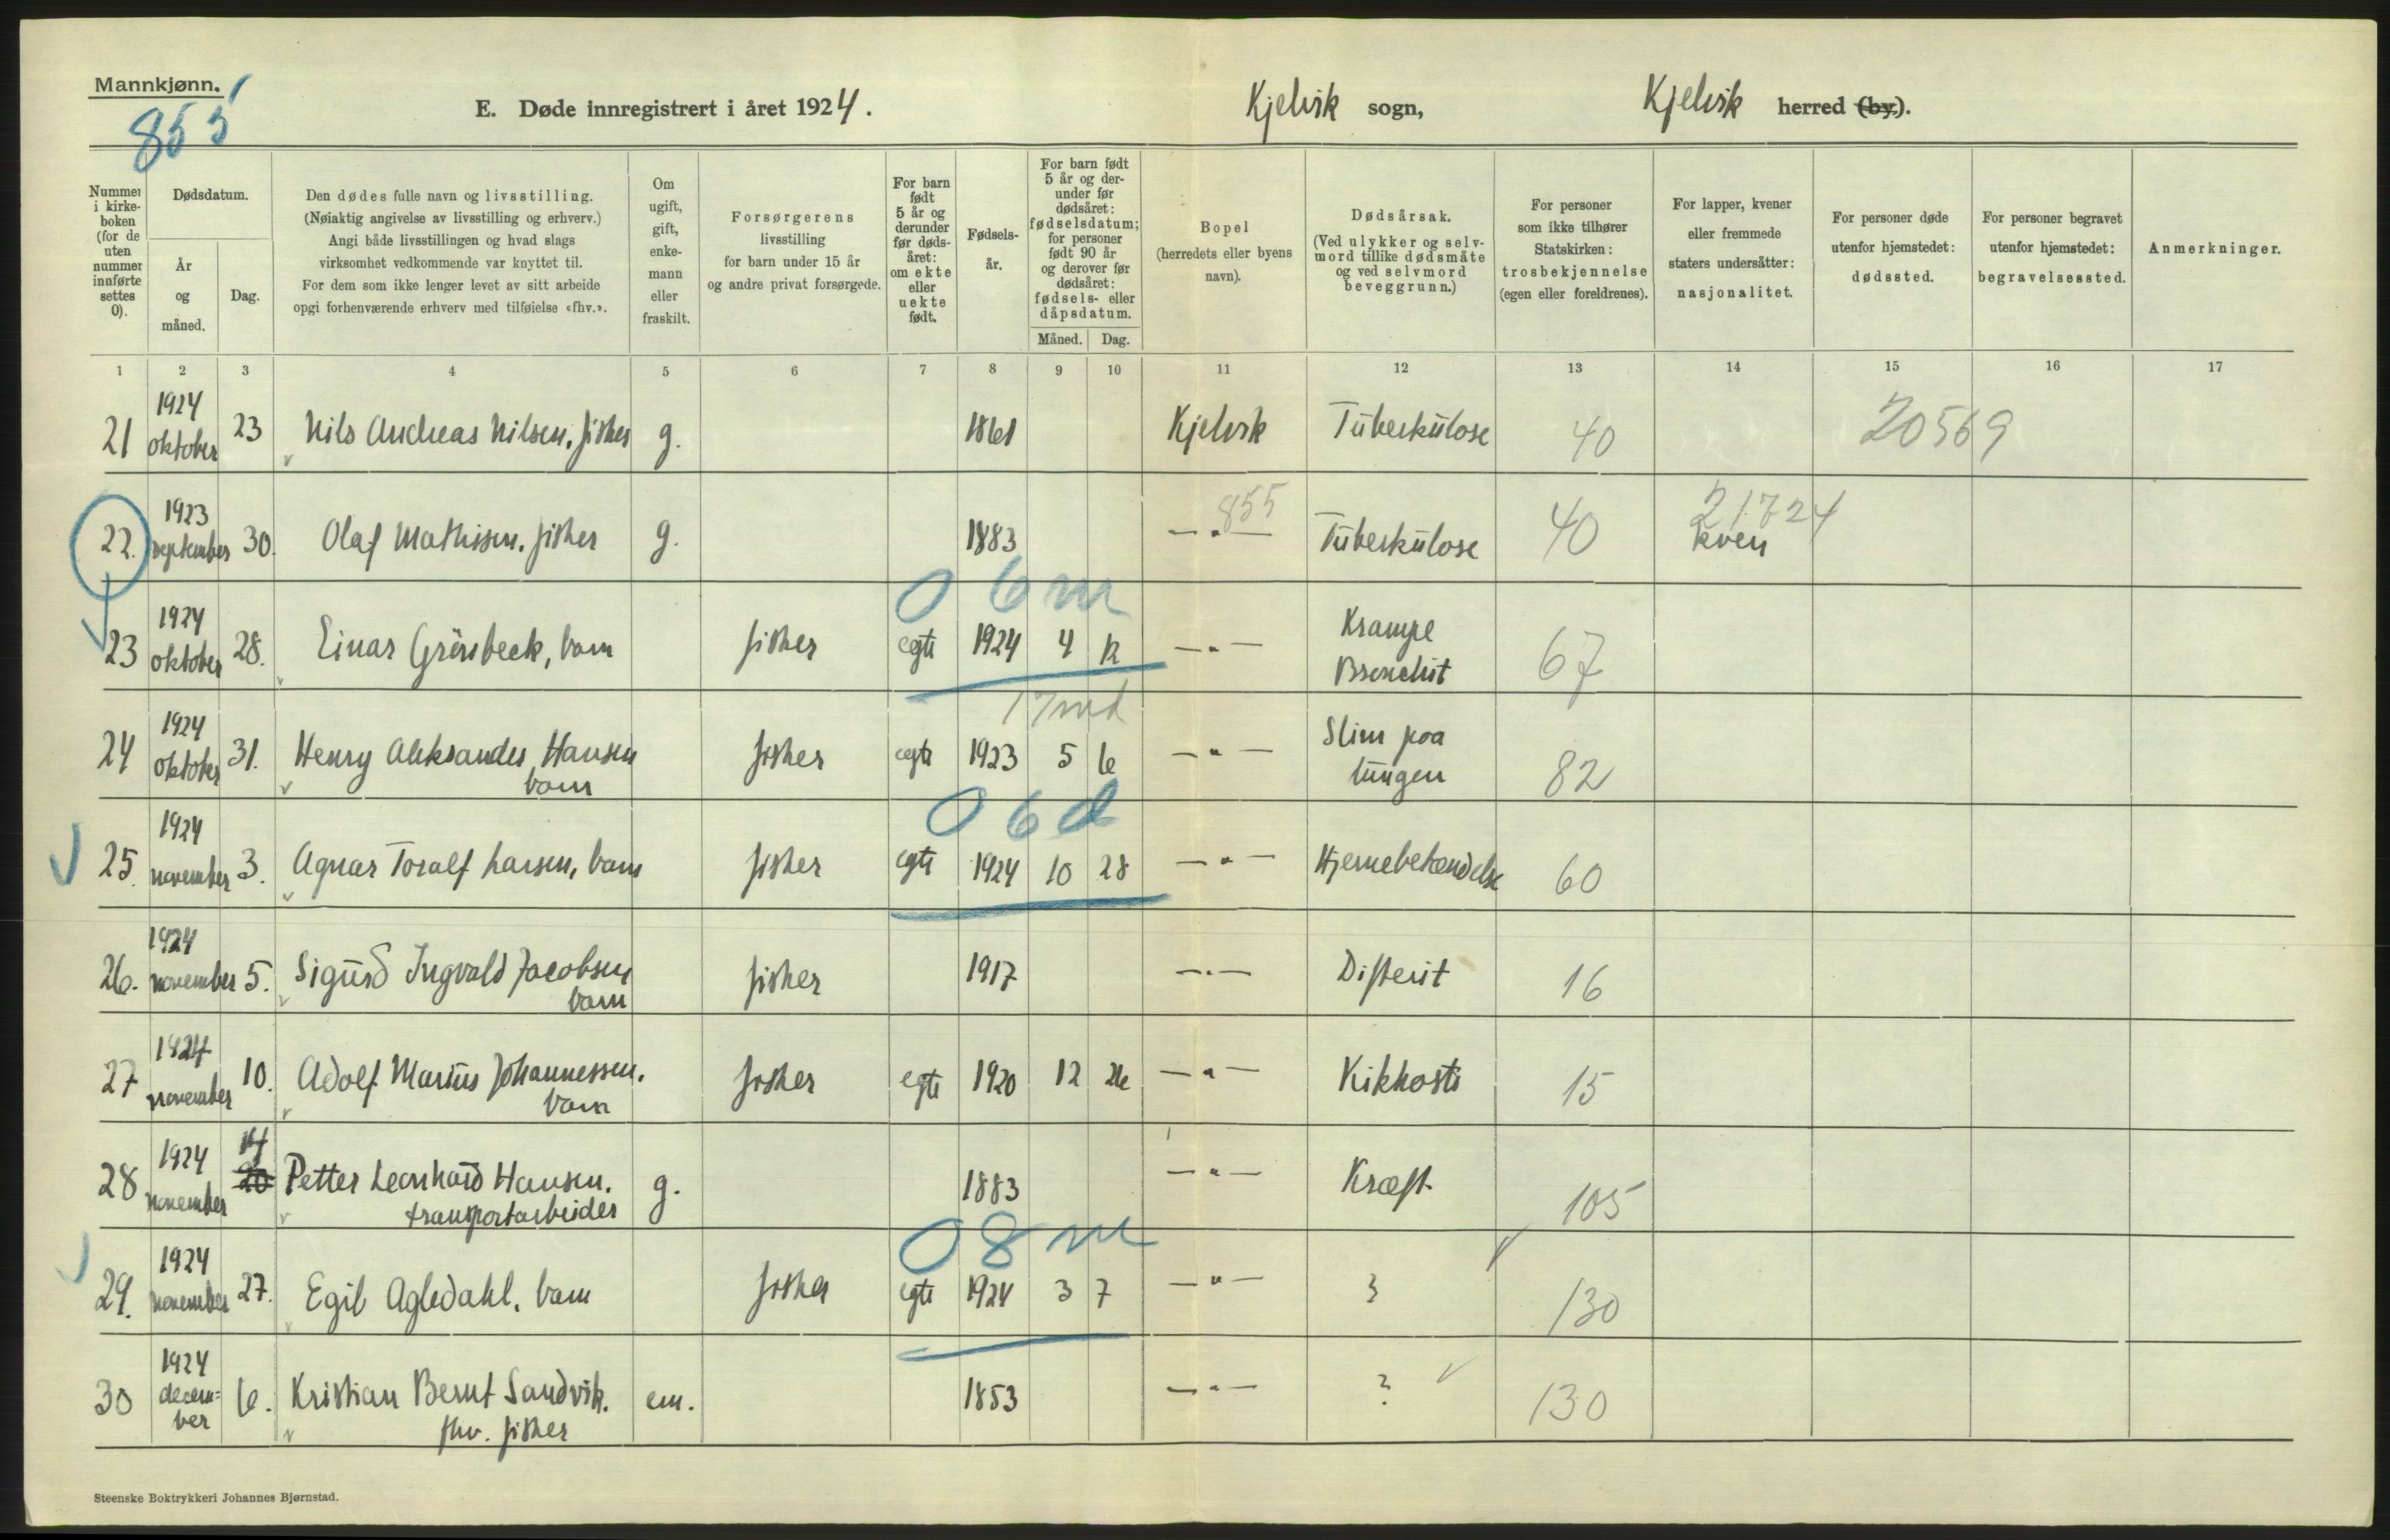 Mannkjønn.
855
E. Døde innregistrert i året 1924.
Kjelvik sogn,
Kjelvik herred (by).
Nummer i kirke-boken (for de uten nummer innførte settes 0).
Dødsdatum.
År og måned.
Dag.
Den dødes fulle navn og livsstilling.
(Nøiaktig angivelse av livsstilling og erhverv.)
Angi både livsstillingen og hvad slags
virksomhet vedkommende var knyttet til.
For dem som ikke lenger levet av sitt arbeide
opgi forhenværende erhverv med tilføielse «fhv.».
Om ugift, gift, enke-mann eller fraskilt.
Forsørgerens
livsstilling
for barn under 15 år
og andre privat forsørgede.
For barn født 5 år og derunder før døds-året: om ekte eller uekte født.
Fødsels-år.
For barn født 5 år og der-under før dødsåret: fødselsdatum; for personer født 90 år og derover før dødsåret: fødsels- eller dåpsdatum.
Måned. Dag.
Bopel
(herredets eller byens navn).
Dødsårsak.
(Ved ulykker og selv-mord tillike dødsmåte og ved selvmord beveggrunn.)
For personer som ikke tilhører Statskirken: trosbekjennelse (egen eller foreldrenes).
For lapper, kvener eller fremmede staters undersåtter: nasjonalitet.
For personer døde utenfor hjemstedet: dødssted.
For personer begravet utenfor hjemstedet: begravelsessted.
Anmerkninger.
1 2 3 4 5 6 7 8 9 10 11 12 13 14 15 16 17
21 1924 oktober 23 Nils Andreas Nilsen, fisker g. 1861 Kjelvik Tüberkülose 40 20569
22. 1923 september 30. Olaf Mathisen. fisker g. 1883 —"— 855 Tüberkülose 40 21724 kven
0 6 m
23 1924 oktober 28. Einar Grönbeck, barn fisker egte 1924 4 12 —"— Krampe Bronchit 67
17 md
24 1924 oktober 31. Henry Aleksander Hansen barn fisker egte 1923 5 6 —"— Slim paa lüngen 82
0 6 d
25. 1924 november 3. Agnar Toralf Larsen, barn fisker egte 1924 10 28 —"— Hjernebetændelse 60
26. 1924 november 5. Sigürd Ingvald Jacobsen barn fisker 1917 —"— Difterit 16
27 1924 november 10. Adolf Mariüs Johannessen. barn fisker egte 1920 12 26 —"— Kikhoste 15
28 1924 november 20 14 Petter Leonhard Hansen. transportarbeider g. 1883 —"— Kræft 105
0 8 m
29. 1924 november 27. Egil Agledahl. barn fisker egte 1924 3 7 —"— ? 130
30 1924 decem=ber 6. Kristian Bernt Sandvik. fhv. fisker em. 1853 —"— ? 130
Steenske Boktrykkeri Johannes Bjørnstad.